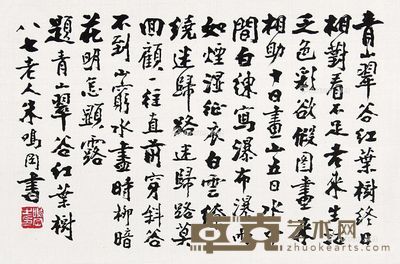 青山翠谷紅葉樹終日
相對看不足老來生活
乏色彩欲假圖畫來
相助十日畫山五日水中
間白練寫瀑布瀑
如煙濕征衣白雲繚
繞迷歸路迷歸路莫
回顧一往直前穿斜谷
不到山窮水盡時柳暗
花明怎顯露
題青山翠谷紅葉樹
八七老人朱鳴岡書
艺术网
zhuokearts.com